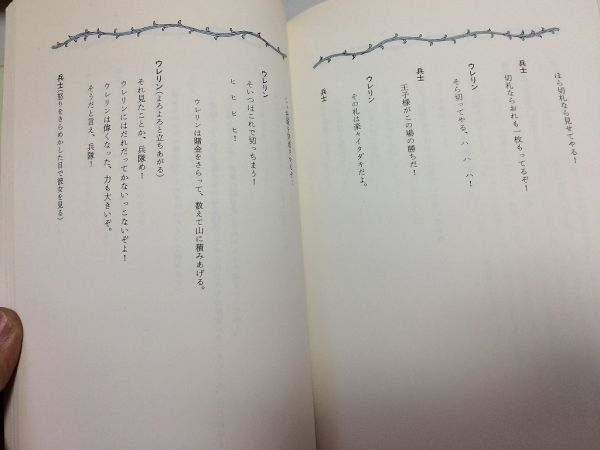 ほら切札なら見せてやる！
兵士
切札ならおれも一枚もってるぞ！
ウレリン
そら切ってやる、ハ　ハ　ハ！
兵士
王子様がこの場の勝ちだ！
ウレリン
その札は楽々イタダキだよ。
兵士
ウレリン
そいつはこれで切っちまう！
ヒ　ヒ　ヒ　ヒ！
ウレリンは賭金をさらって、数えて山に積みあげる。
ウレリン（よろよろと立ちあがる）
それ見たことか、兵隊め！
ウレリンにはだれだってかないっこないぞよ！
ウレリンは偉くなった、力も大きいぞ。
そうだと言え、兵隊！
兵士（怒りをきらめかした目で彼女を見る）